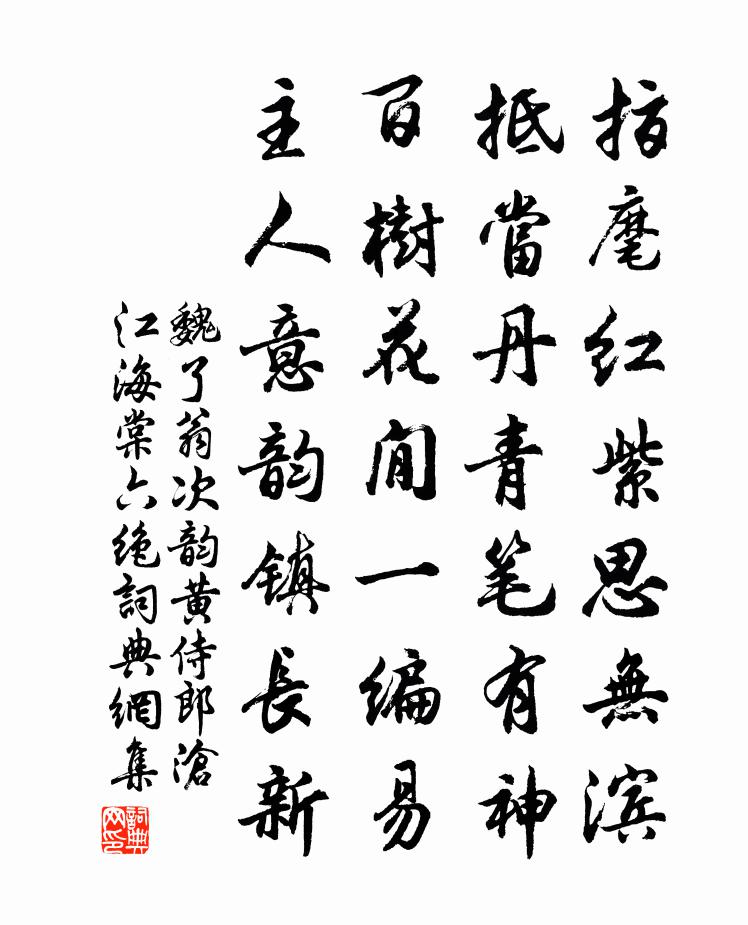 指麾红紫思無滨
抵當丹青笔有神
百樹花間一编易
主人意韵镇長新
魏了翁次韵黄侍郎滄
江海棠六绝詞典網集
詞典网印